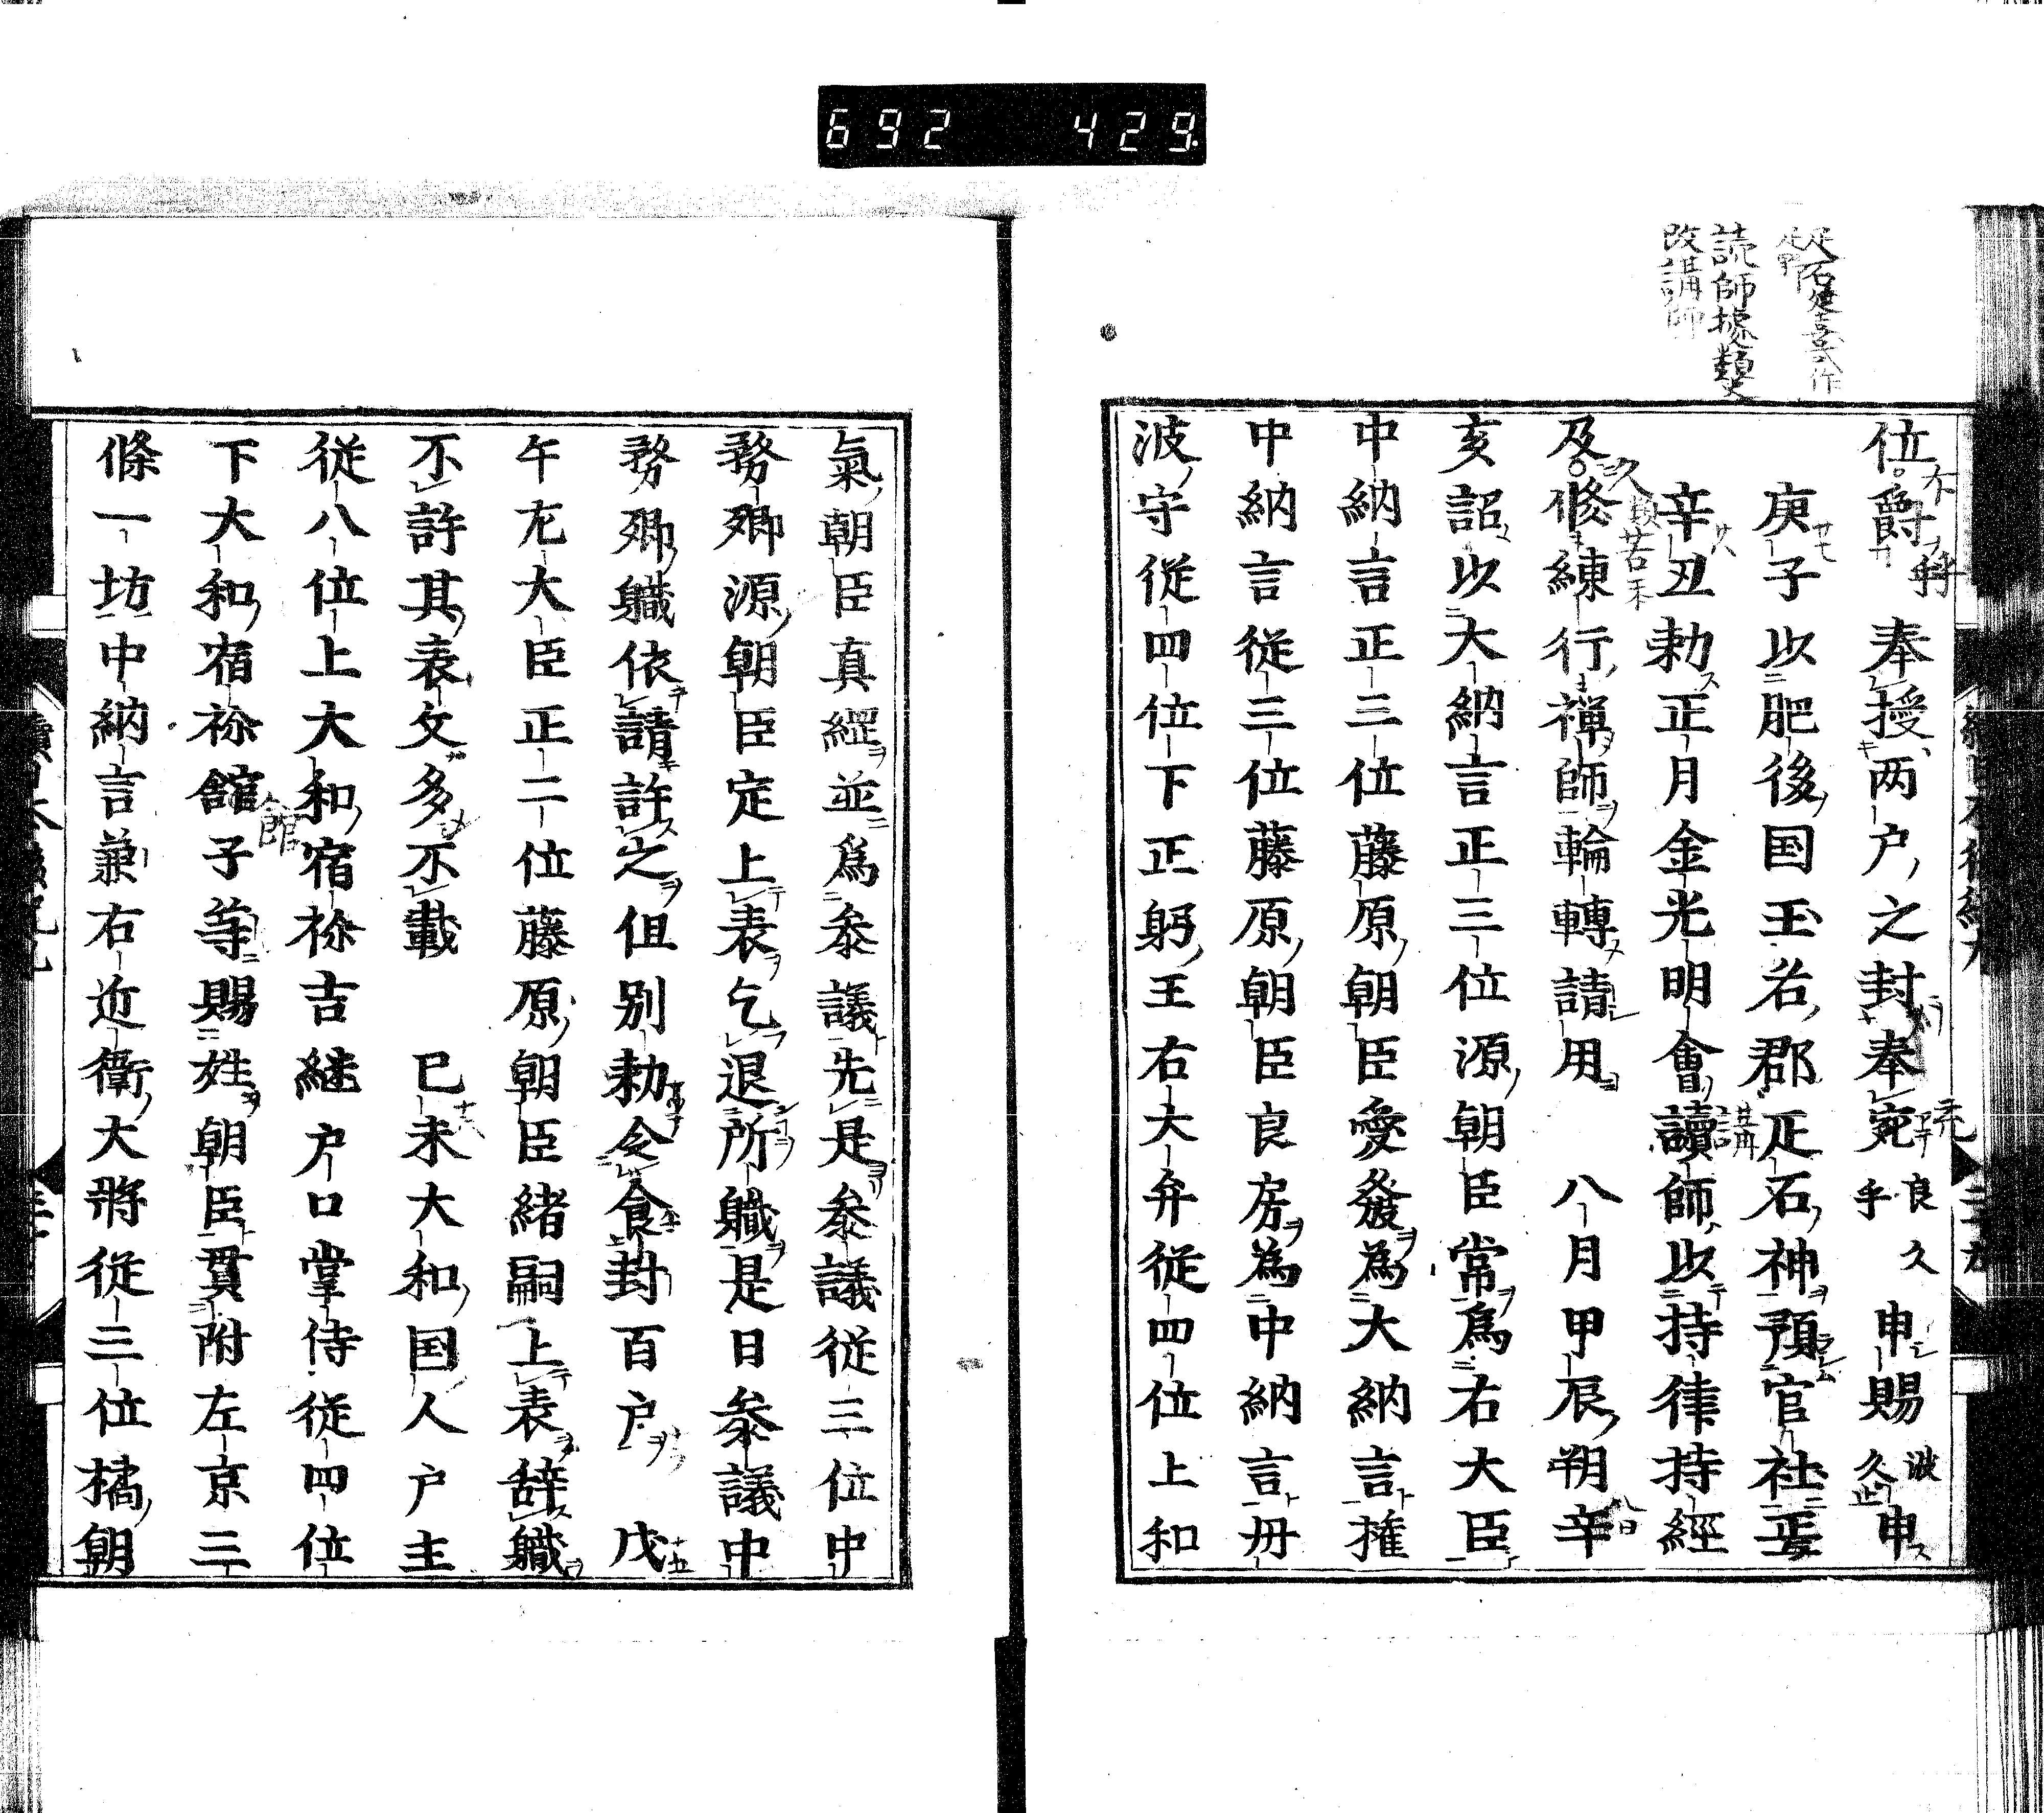 692 429
足石延喜式作
疋野
読師據類史
改講師
位爵奉授两户之封奉宛良久申賜波久止申
庚子以肥後国玉名郡疋石神預官社焉
辛丑勅正月金光明會讀師以持律持經
及修練行禅師輪轉請用　八月甲辰朔辛
亥詔以大納言正三位源朝臣常為右大臣
中納言正三位藤原朝臣愛發為大納言權
中納言従三位藤原朝臣良房為中納言丹
波守従四位下正躬王右大弁従四位上和
氣朝臣真綱並為叅議先是叅議従三位中
務卿源朝臣定上表乞退所職是日叅議中
務卿職依請許之但别勅令食封百户　戊
午左大臣正二位藤原朝臣緒嗣上表辞職
不許其表文多不載　已未大和国人户主
従八位上大和宿祢吉継户口掌侍従四位
下大和宿祢舘子等賜姓朝臣貫附左京三
條一坊中納言兼右近衛大将従三位橘朝